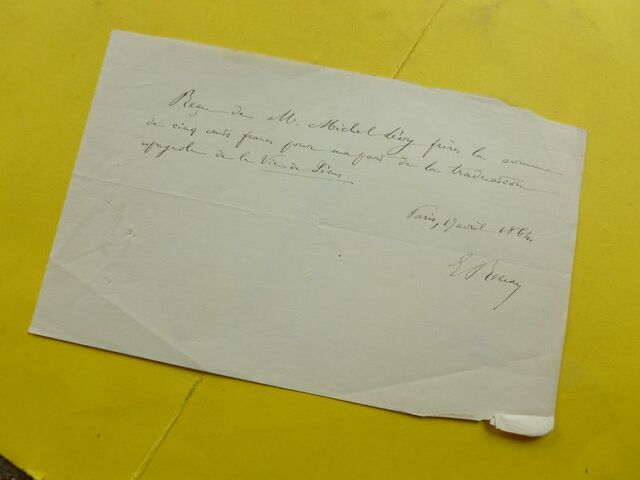 Reçu de M. Michel Lévy frères la somme
de cinq cents francs pour ma part de la traduction
espagnole de la Vie de Jésus.
Paris, 17 avril 1864.
E Renan